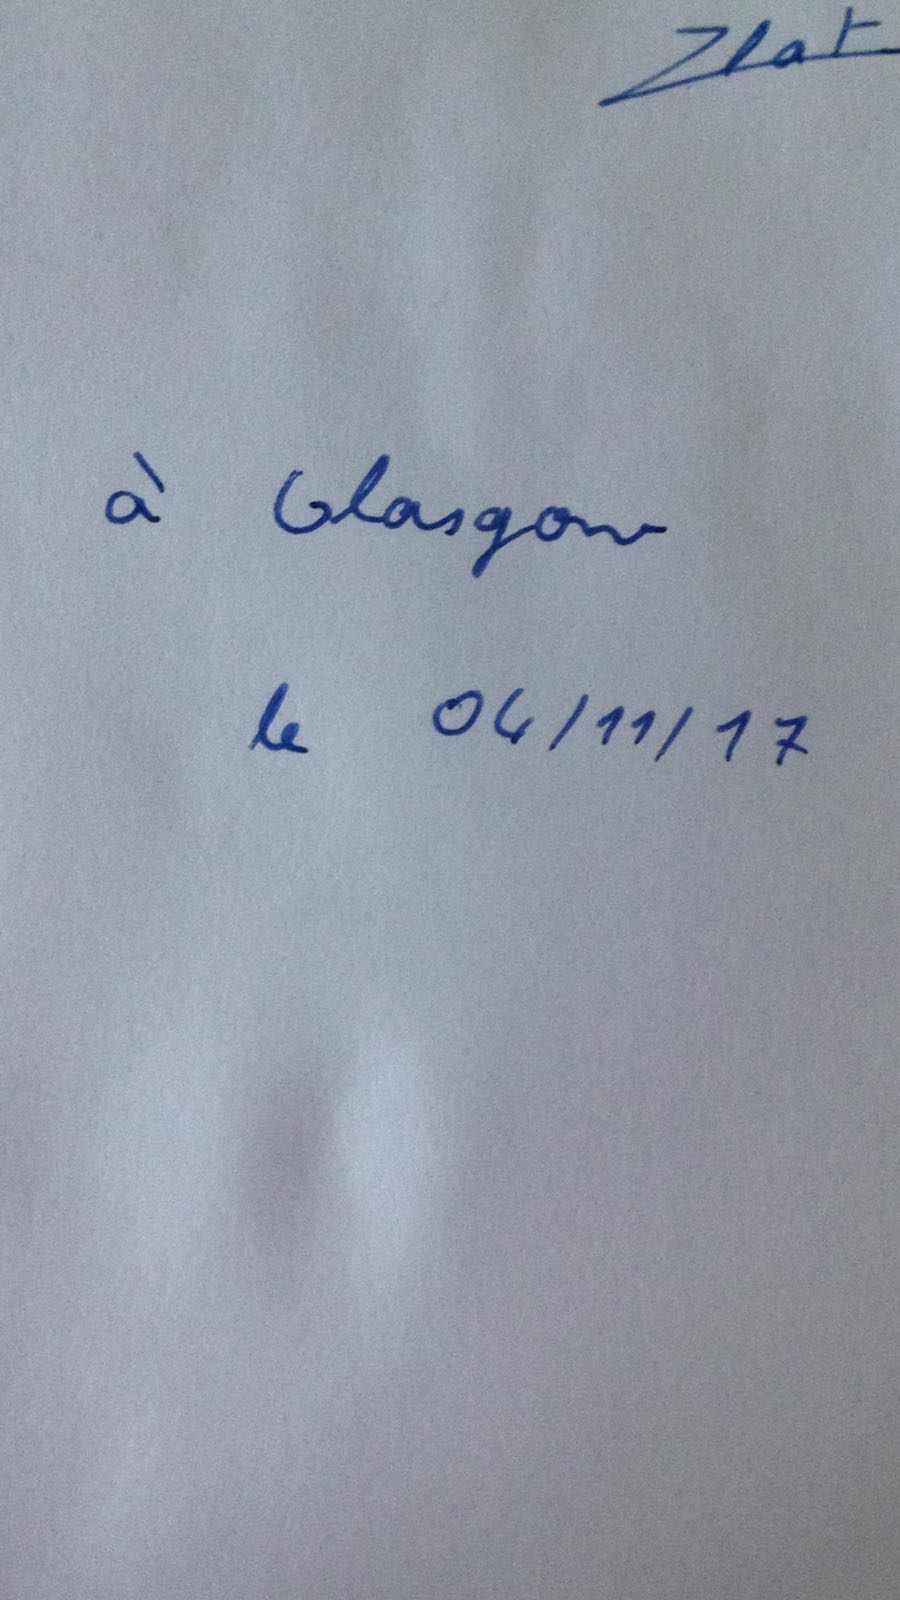 Zlat
à Glasgow
le 04/11/17